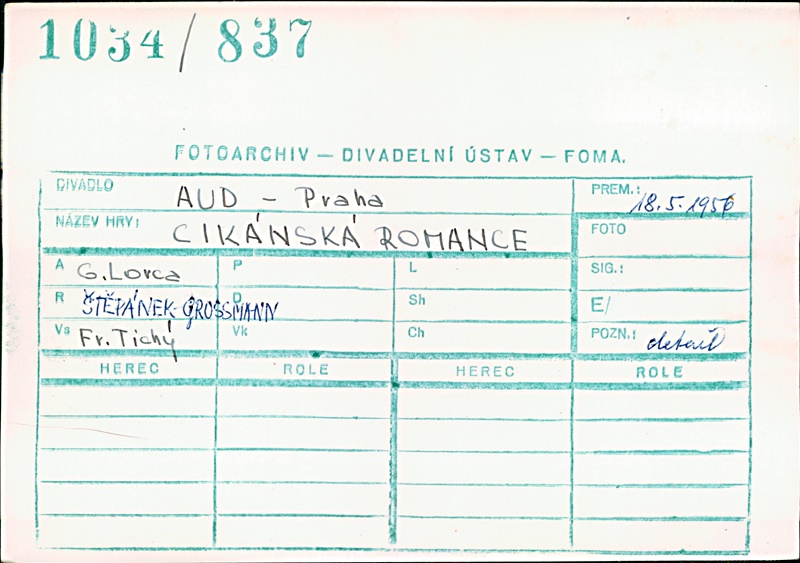 1034/837
FOTOARCHIV — DIVADELNÍ ÚSTAV — FOMA.
DIVADLO AUD - Praha PREM.: 18.5.1956
NÁZEV HRY: CIKÁNSKÁ ROMANCE FOTO
A G. Lorca P L SIG.:
R ŠTĚPÁNEK - GROSSMANN D Sh E/
Vs Fr. Tichý Vk Ch POZN.: detail
HEREC ROLE HEREC ROLE